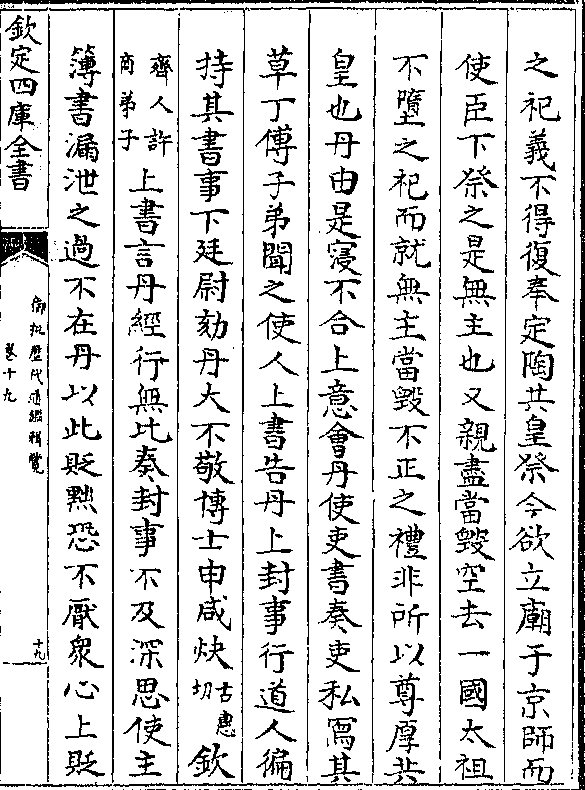 之祀義不得復奉定陶共皇祭今欲立廟于京師而
使臣下祭之是無主也又親盡當毀空去一國太祖
不墮之祀而就無主當毀不正之禮非所以尊厚共
皇也丹由是寖不合上意會丹使吏書奏吏私寫其
草丁傅子弟聞之使人上書告丹上封事行道人徧
持其書事下廷尉劾丹大不敬博士申咸炔古惠切欽
齊人許商弟子上書言丹經行無比奏封事不及深思使主
簿書漏泄之過不在丹以此貶黜恐不厭衆心上貶
欽定四庫全書
御批歷代通鑑輯覽
卷十九
十九